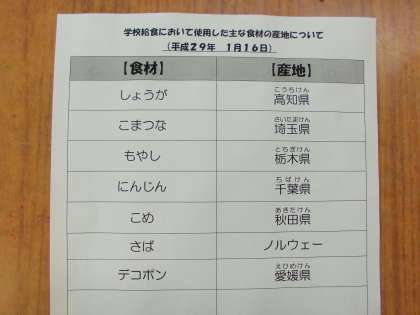 学校給食において使用した主な食材の産地について
（平成２９年　１月１６日）
【食材】　【産地】
しょうが　高知県
こうちけん
こまつな　埼玉県
さいたまけん
もやし　栃木県
とちぎけん
にんじん　千葉県
ちばけん
こめ　秋田県
あきたけん
さば　ノルウェー
デコポン　愛媛県
えひめけん